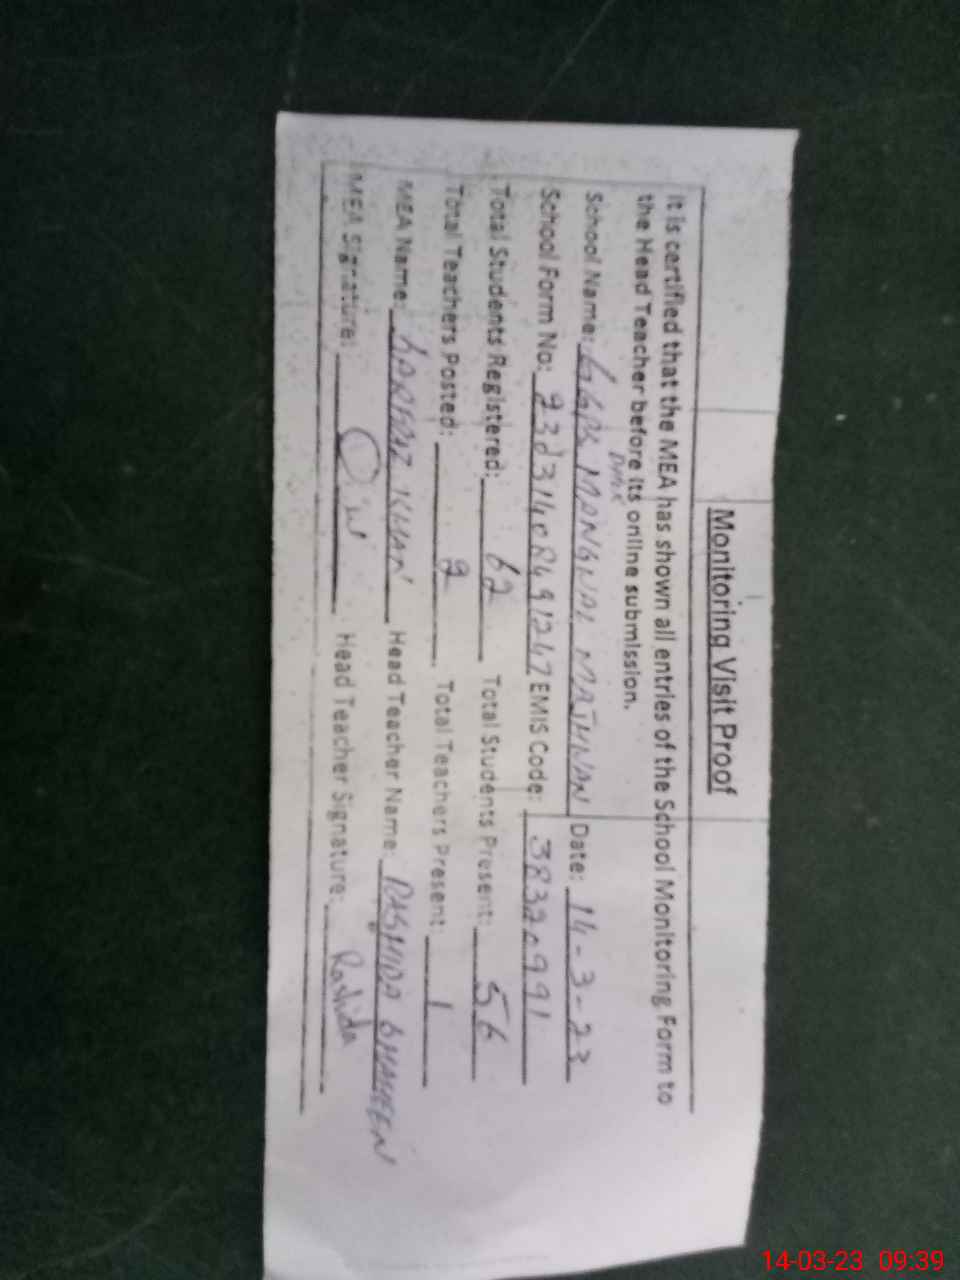 Monitoring Visit Proof
It is certified that the MEA has shown all entries of the School Monitoring Form to
the Head Teacher before its online submission.
School Name: GGPS MANGWAL Date: 14-3-23
School Form No: EMIS Code:
Total Students Registered: 62 Total Students Present: 56
Total Teachers Posted: 2 Total Teachers Present: 1
MEA Name: KHAN Head Teacher Name: RASHIDA SHAHEEN
MEA Signature: Head Teacher Signature: Rashida
14-03-23 09:39